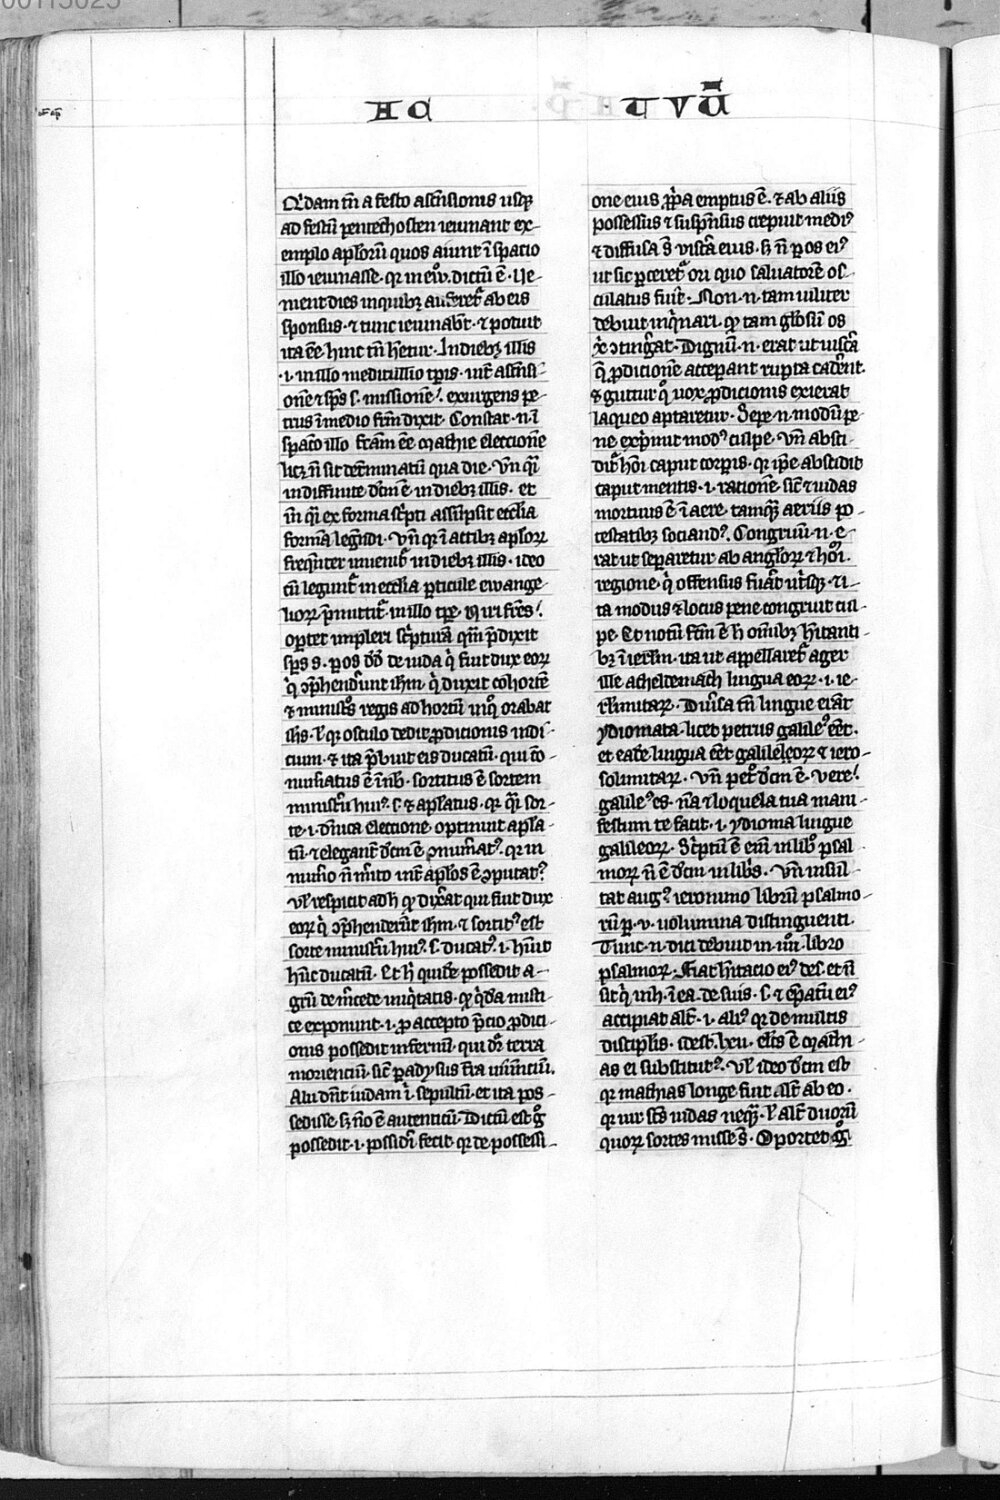 AC TVU̅
Q̇dam tn̄ a festo ascēsionis usq̢
ad festū pentechosten ieiunant ex-
emplo aploꝝ quos aiunt ī spatio
illo ieiunasse · qꝛ in ew̄ · dictū ē · Ue-
nient dies inquibꝫ auferet᷑ ab eis
sponsus · ⁊ tunc ieiunabt̄ · ⁊ potuit
ita eē · hinc tn̄ hētur · Indiebꝫ illis
· i · in illo meditullio tp̄is · int̄ ascēsi-
onē ⁊ sp̄s s̄ · missionē · exurgens pe-
trus ī medio frm̄ dixit · Constat · n · ī
spacō illo fc̄am eē mathie eleccionē
licꝫ n̄ sit det̄minatū qua die · Vn̄ q̄i
indiffinite dc̄m ē indiebꝫ illis · et
in̄ q̄i ex forma sc̄pti assūpsit ecc̄lia
formā legēdi · Vn̄ qꝛ ī actibꝫ aploꝝ
freq̄nter inuenit᷑ indiebꝫ illis · ideo
cū legunt᷑ in ecc̄lia ꝑticule ewange-
lioꝝ p̄mittit᷑ · in illo tꝑe · Uiri frēs
oꝑtet impleri sc̄pturā quā p̄dixit
sp̄s s · ꝑ os dd̄ de iuda q̇ fuit dux eoꝝ
q̇ ꝯp̄henderunt ih̄m · q̇ duxit cohortē
⁊ ministros regis ad hortū inq̊ orabat
ih̄s · ł qꝛ osculo dedit ꝓdicionis indi-
cium · ⁊ ita p̄buit eis ducatū · qui cō-
nūatus ē ī nob̄ · sortitus ē sortem
ministerii huiꝰ · s · ⁊ apłatus · qꝛ q̄i sor-
te · i · diuīa eleccione optinuit apła-
tū · ⁊ eleganter dc̄m ē ꝯnumatꝰ · qꝛ in
numō n̄ mīto int̄ apłos ē ꝯputatꝰ
Vł respicit ad h̄ qꝫ dixerat qui fuit dux
eoꝝ q̇ ꝯp̄henderūt ih̄m · ⁊ sortitꝰ est
sorte ministerii huiꝰ · s · ducatꝰ · i · hūit
hūc ducatū · Et h̄ quidē possedit a-
grū de m̄cede iniq̇tatis · qꝫ q̇dā misti-
ce exponunt · i · ꝑ accepto p̄cio ꝓdici-
onis possedit infernū · qui dr̄ terra
morienciū · sic̄ ꝑadysus t̄ra uiuenciū ·
Alii dnt̄ iudam ī sepultū · et ita pos-
sedisse · sꝫ nō ē autenticū · Dictū est g̊
possedit · i · possidi fecit · qꝛ de possessi-
one eius ꝓp̄a emptus ē · ⁊ ab aliis
possessus ⁊ suspensus crepuit mediꝰ
⁊ diffusa s̄ viscera eius · s̄ n̄ ꝑ os eiꝰ
ut sic ꝑceret᷑ ori quo saluatorē os-
culatus fuit̄ · Non · n · tam uiliter
debuit inq̇nari · qꝫ tam głosū os
x̄ ꝯtingerat · Dignū · n · erat ut uiscera
q̄ ꝓdicionē acceperant rupta caderent ·
⁊ guttur q̊ uox ꝓdicionis exierat
laqueo aptaretur · Sepe · n · modū pe-
ne exp̄mit modꝰ culpe · Vn̄ absci-
dit᷑ hōi caput corꝑis · qꝛ ip̄e abscidit
caput mentis · i · rationē · sic̄ ⁊ iudas
mortuus ē ī aere · tamqꝫ aeriis po-
testatibꝫ sociandꝰ · Congruū · n · e-
rat ut separetur ab angłoꝝ ⁊ hōi
regione · q̇ offensus fuāt ut̄sqꝫ · ⁊ i-
ta modus ⁊ locus pene congruit cul-
pe · Et notū fc̄m ē h̄ om̄ibꝫ hitanti-
bꝫ ī ierłm · ita ut appellaret᷑ ager
ille acheldemach lingua eoꝝ · i · ie-
rłimitaꝝ · Diuersa tn̄ lingue erāt
ydiomata · licet petrus galileꝰ eēt ·
et eadē lingua eēt galileleoꝝ ⁊ iero-
solimitaꝝ · Vn̄ pet᷑ dc̄m ē · Vere
galileꝰ es · nā ⁊ loquela tua mani-
festum te facit · i · ydioma lingue
galileoꝝ · Sc̄ptū ē eīm in libro psal-
moꝝ n̄ ē dc̄m in lib̄s · Vn̄ insul-
tat augꝰ ieronimo librū psalmo-
rū ꝑ · v · uolumina distinguenti ·
Tunc · n · dici debuit in · iiiī · libro
psalmoꝝ · Fiat h̄itacio eiꝰ des̄ · et n̄
sit q̇ inh̄ · ī ea · de suis · s · ⁊ ep̄atū eiꝰ
accipiat alt̄ · i · aliꝰ qꝛ de multis
discipłis · idest · lxxii · elc̄s ē math-
as ei substitutꝰ · Vł ideo dc̄m est
qꝛ mathias longe fuit alt̄ ab eo ·
qꝛ iur scs̄ iudas neqꝫ · ł alt̄ duorū
quoꝝ sortes misse s̄ · Oportet g̊